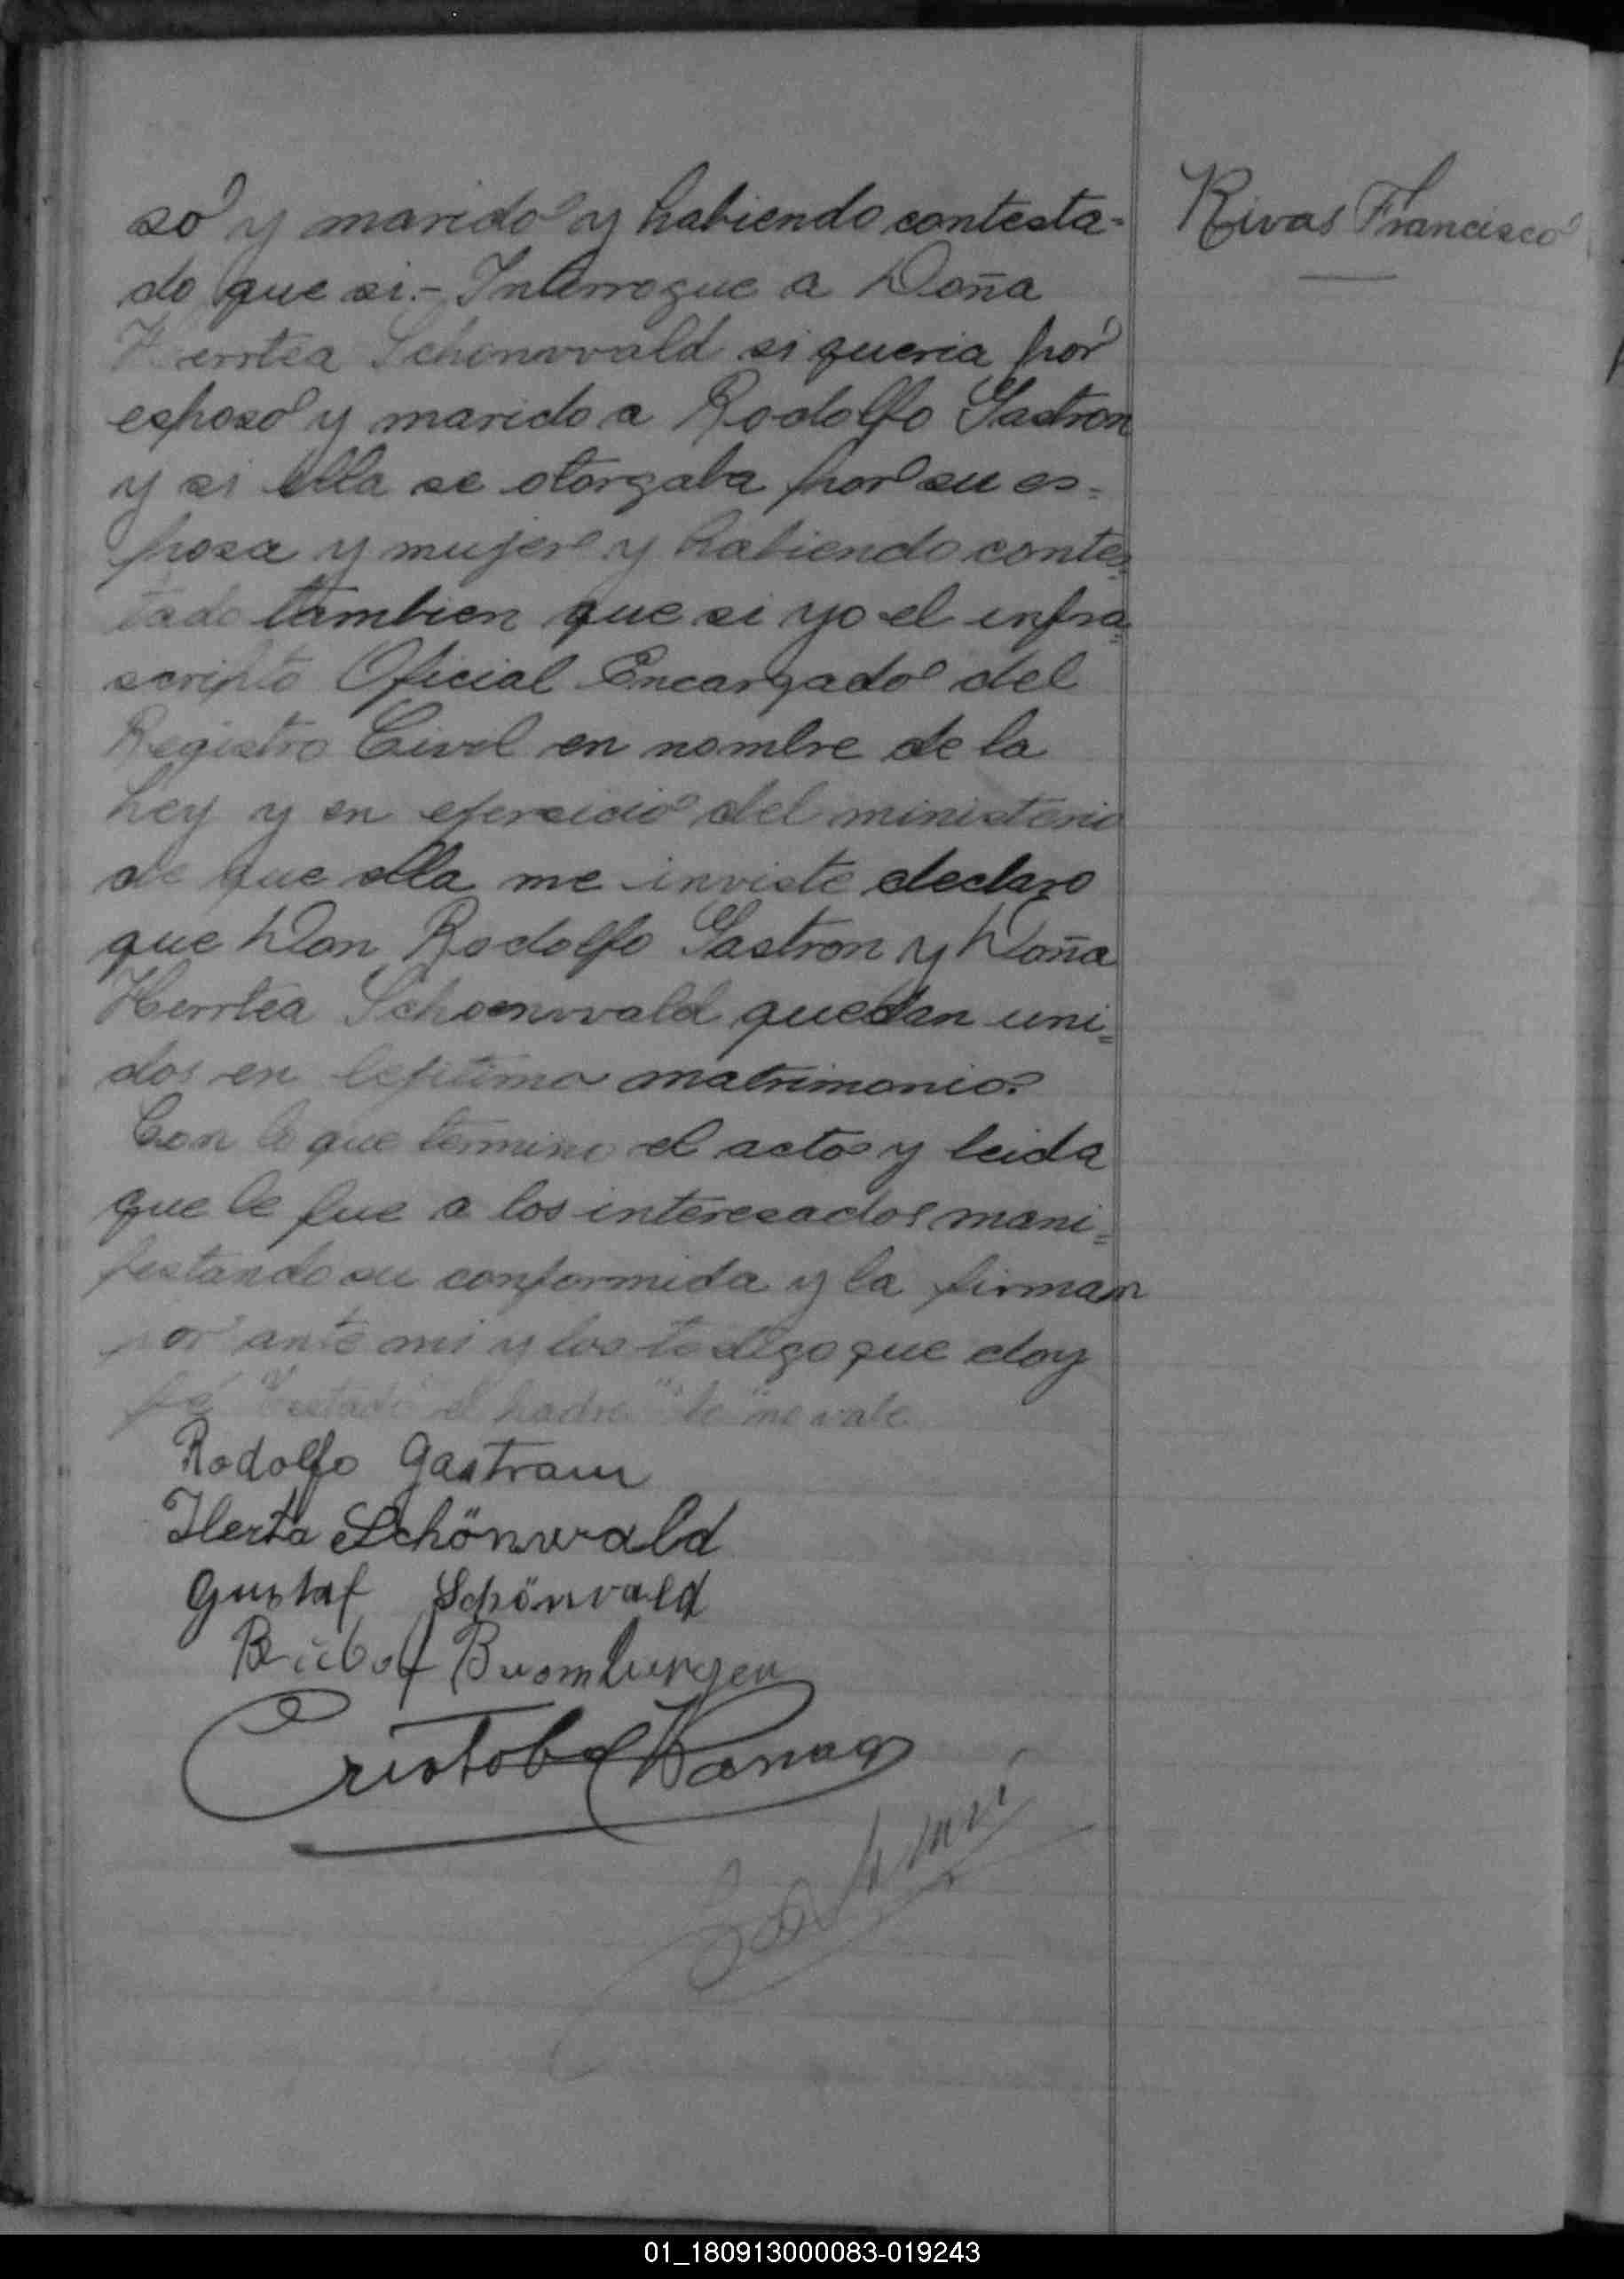 so y marido y habiendo contesta-
do que si.- Interrogue a Doña
Herrtea Schonwald si queria por
esposo y marido a Rodolfo Gastron
y si ella se otorgaba por su es=
posa y mujer y habiendo contes=
tado tambien que si yo el infra=
scripto Oficial Encargado del
Registro Civil en nombre de la
Ley y en ejersicio del ministerio
de que ella me inviste declaro
que Don Rodolfo Gastron y Doña
Herrtea Schoenwald quedan uni=
dos en lefitimo matrimonio.
Con lo que termino el acto y leida
que le fue a los interesados mani=
festando su conformida y la firman
por ante mi y los que doy
fé el padre no vale
Rodolfo Gastraun
Herta Schönwald
Gustaf Schönwald
Cristobal
Rivas Francisco
01_180913000083-019243